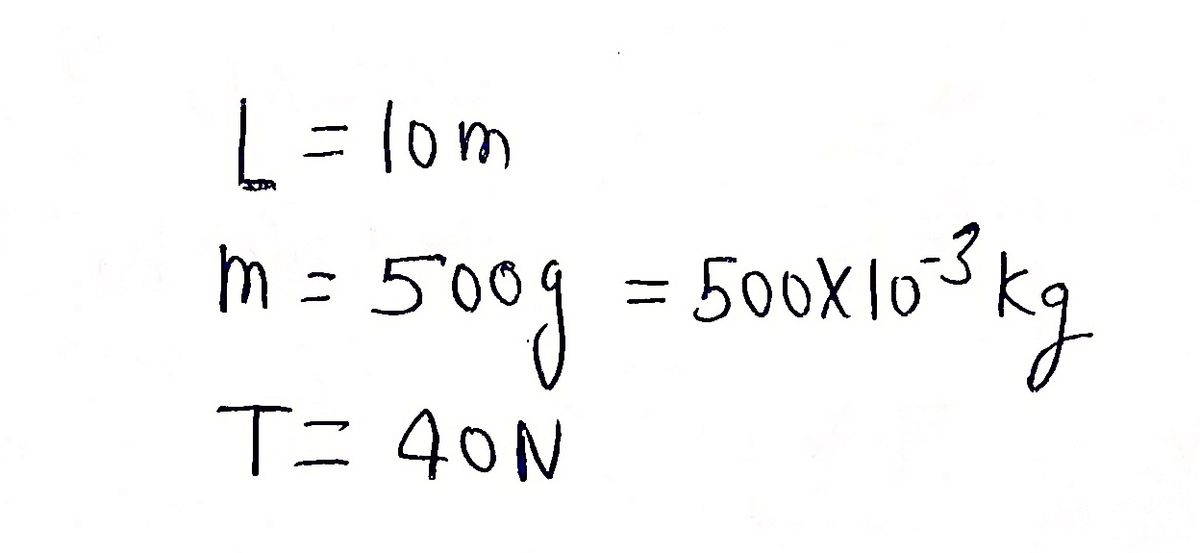 L = 10 m
m = 500g = 500X10⁻³ kg
T = 40N